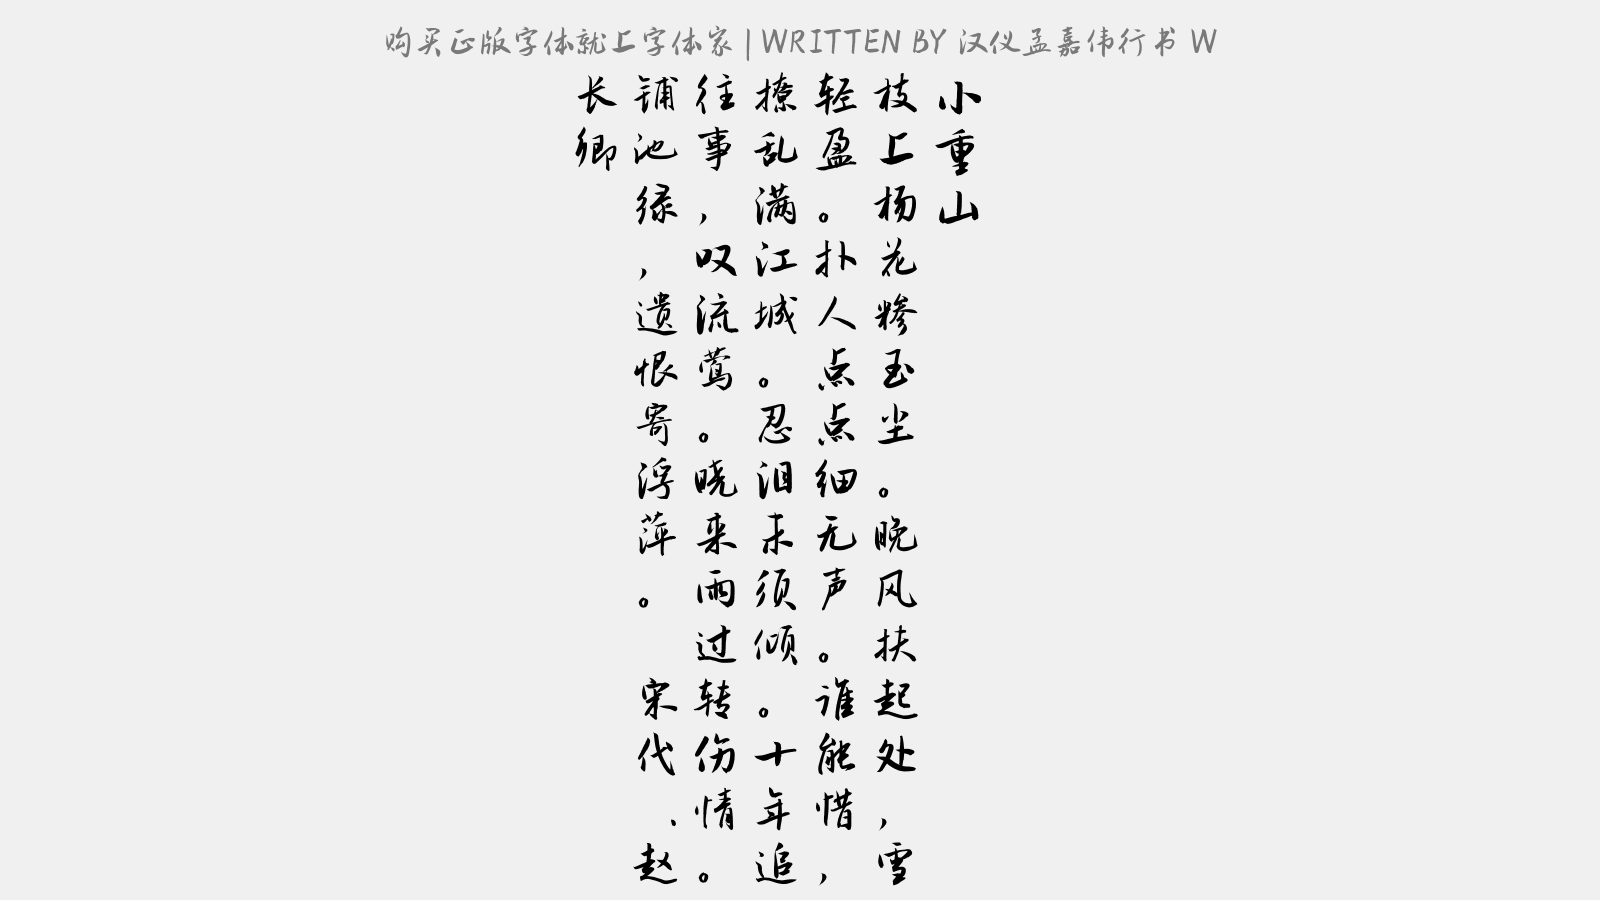 购买正版字体就上字体家 | WRITTEN BY 汉仪孟嘉伟行书 W
小重山
枝上杨花糁玉尘。晚风扶起处，雪
轻盈。扑人点点细无声。谁能惜，
撩乱满江城。忍泪未须倾。十年追
往事，叹流莺。晓来雨过转伤情。
铺池绿，遗恨寄浮萍。 宋代、赵
长卿